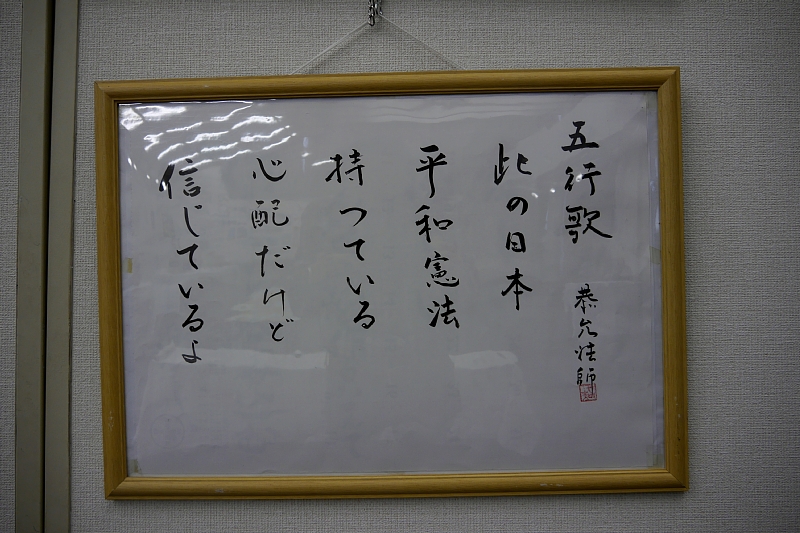 五行歌
此の日本
平和憲法
持つている
心配だけど
信じているよ